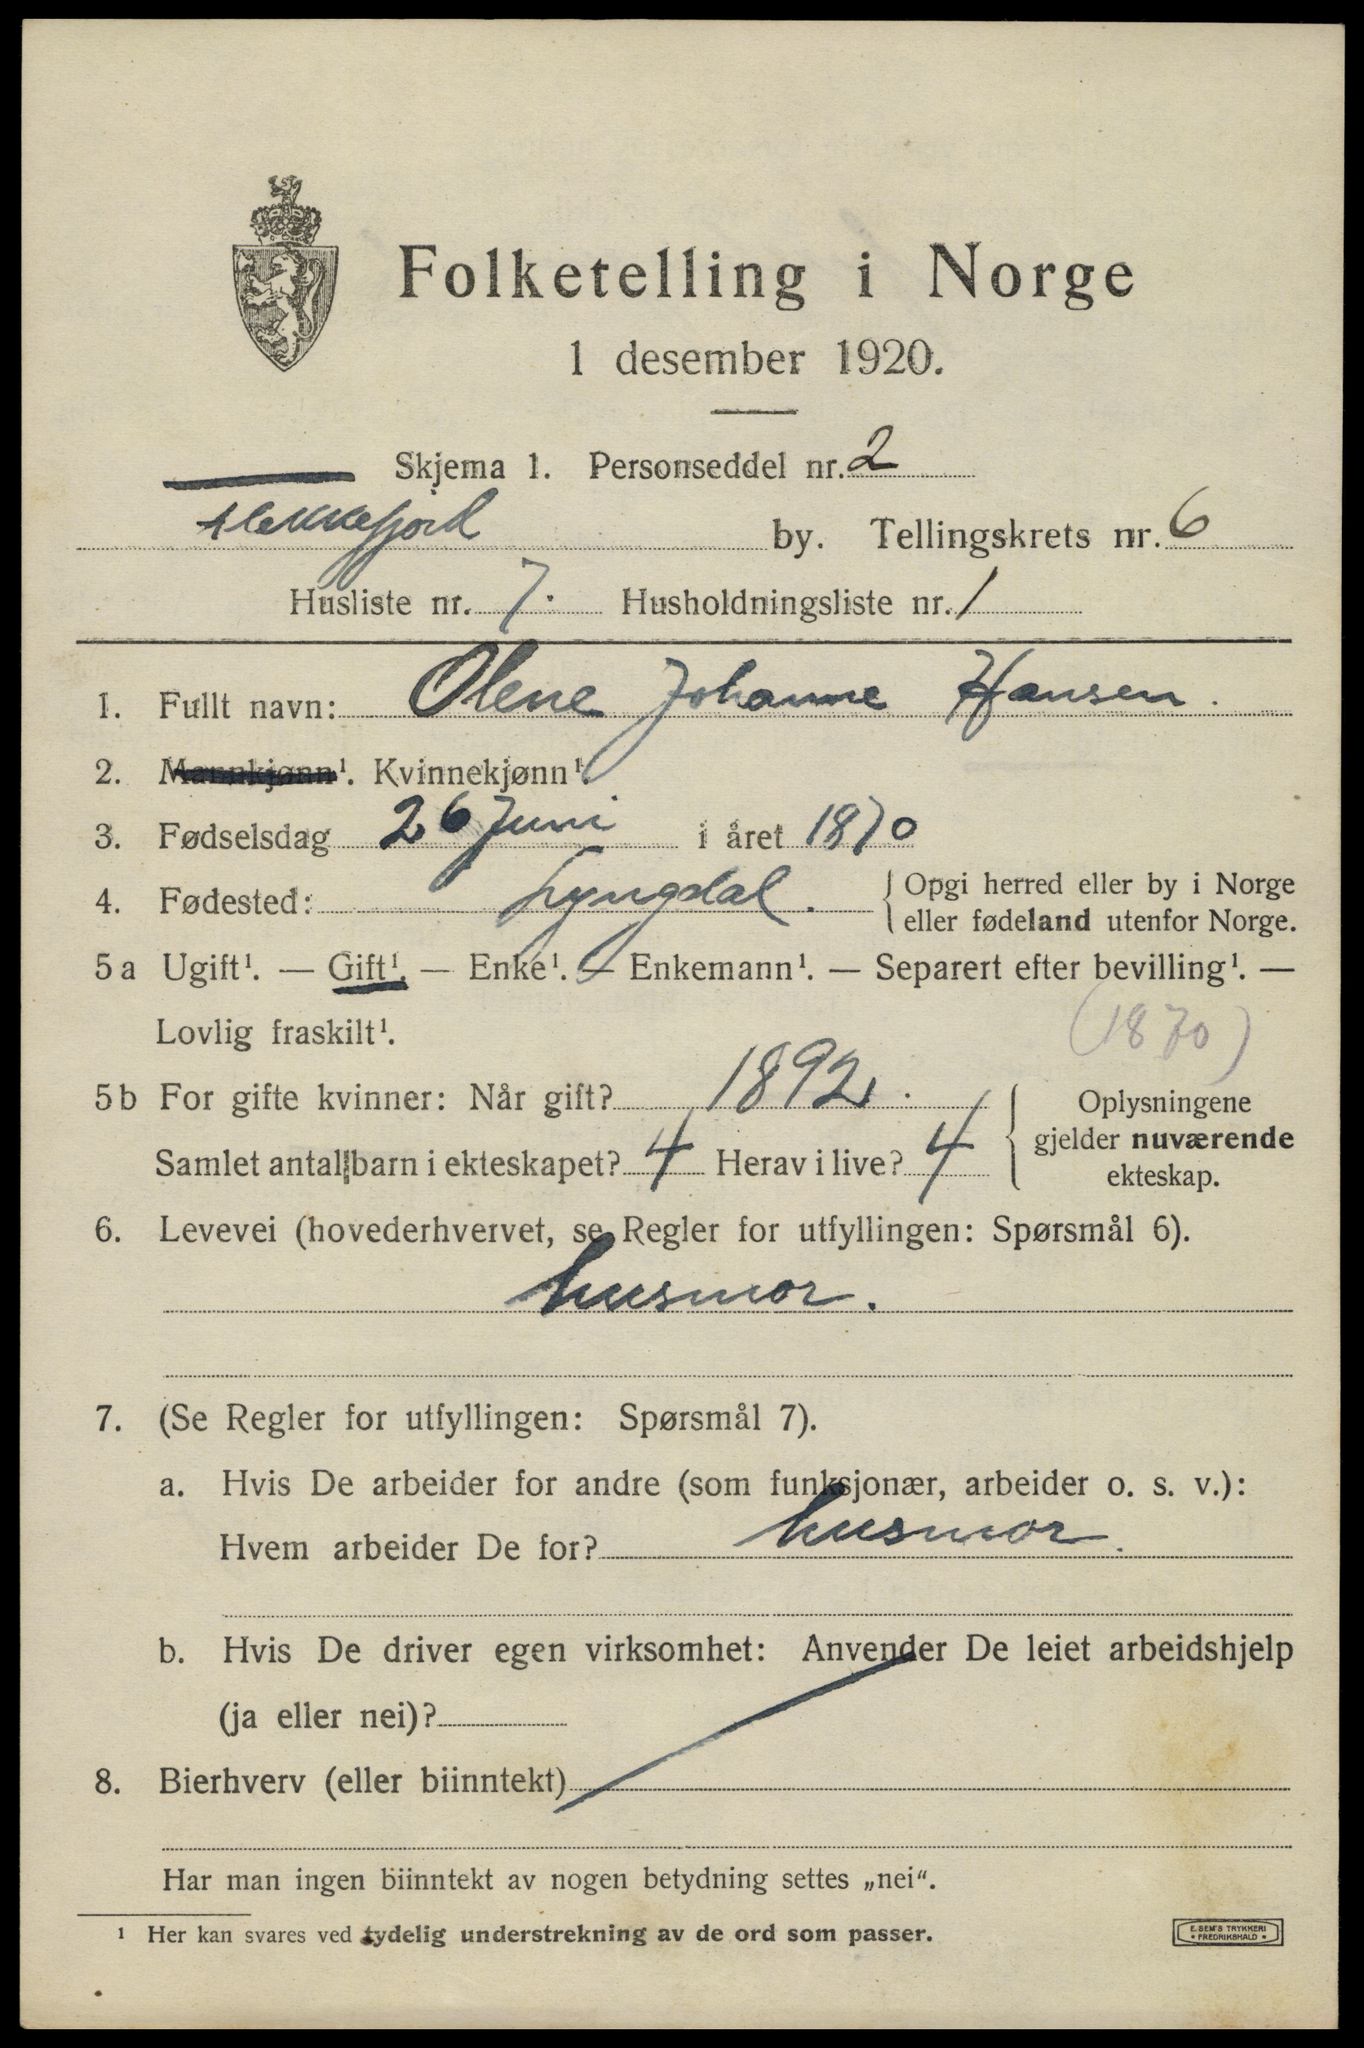 Folketelling i Norge
1 desember 1920.
Skjema 1. Personseddel nr. 2
Flekkefjord by. Tellingskrets nr. 6
Husliste nr. 7. Husholdningsliste nr. 1
1. Fullt navn: Olene Johanne Hansen.
2. Mannkjønn¹. Kvinnekjønn¹.
3. Fødselsdag 26 Juni i året 1870
4. Fødested: Lyngdal. Opgi herred eller by i Norge
eller fødeland utenfor Norge.
5a Ugift¹. — Gift¹. — Enke¹. — Enkemann¹. — Separert efter bevilling¹. —
Lovlig fraskilt¹.
(1870)
5b For gifte kvinner: Når gift? 1892.
Samlet antal barn i ekteskapet? 4 Herav i live? 4
Oplysningene
gjelder nuværende
ekteskap.
6. Levevei (hovederhvervet, se Regler for utfyllingen: Spørsmål 6).
husmor.
7. (Se Regler for utfyllingen: Spørsmål 7).
a. Hvis De arbeider for andre (som funksjonær, arbeider o. s. v.):
Hvem arbeider De for? husmor.
b. Hvis De driver egen virksomhet: Anvender De leiet arbeidshjelp
(ja eller nei)?
8. Bierhverv (eller biinntekt)
Har man ingen biinntekt av nogen betydning settes „nei“.
¹ Her kan svares ved tydelig understrekning av de ord som passer.
E. SEM'S TRYKKERI
FREDRIKSHALD